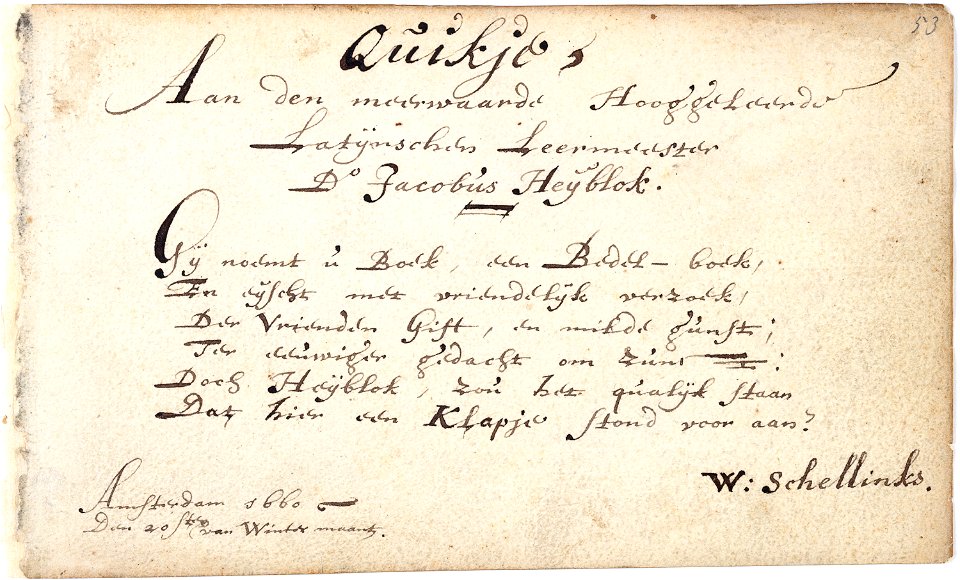 53
Quikje,
Aan den meerwaarde Hooggeleerde
Latÿnschen Leermeester
Do Jacobus Heÿblok.
Gÿ noemt u Boek, een Bedel-boek,
En eÿscht met vriendelÿk verzoek,
Der Vrienden Gift, en milde gunst;
Ter eeuwiger gedacht om :
Doch Heÿblok, zou het qualÿk staan
Dat hier een Klapje stond voor aan?
W: Schellinks.
Amsterdam 1660
Den 20sten van Winter maant.